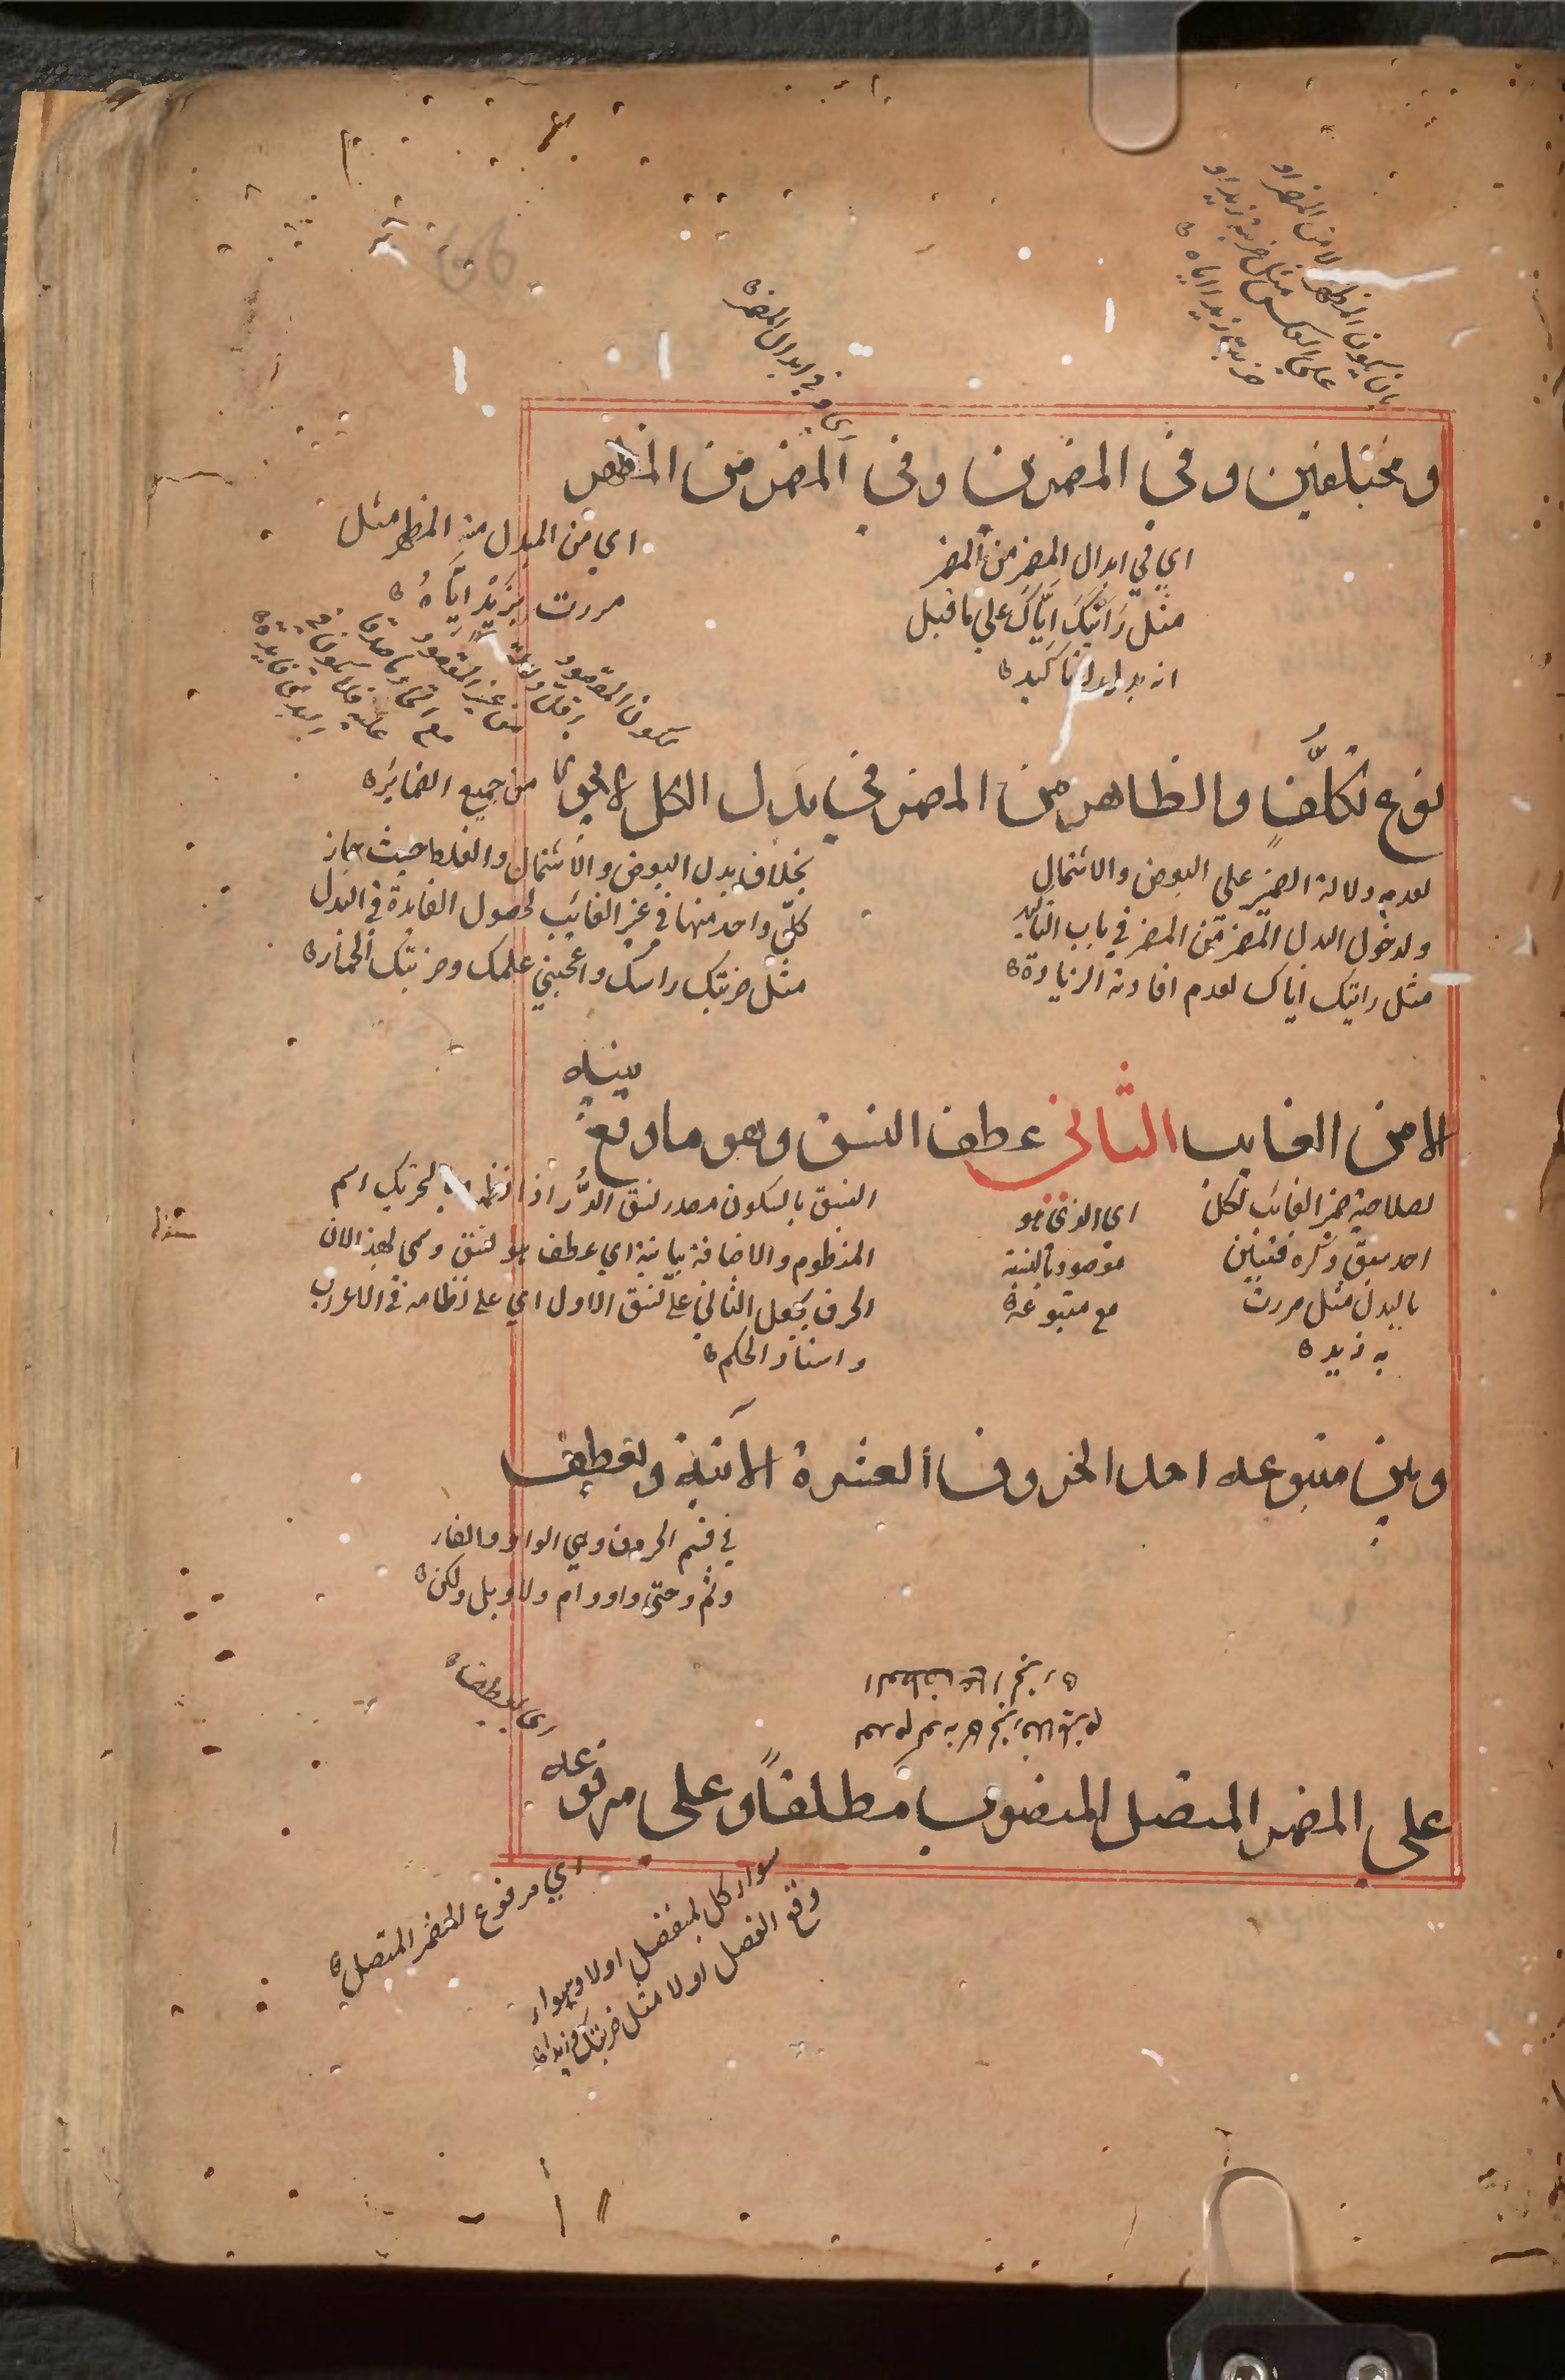 بان يكون المظهر لا من المضمر او
على العكس مثل ضربته زيدا و
ضربت زيدا اياه
اي وفي ابدال المضمر
ومختلفين وفي المضمرين وفي المضمر من المظهر
اي في ابدال المضمر من المضمر
مثل رايتك اياك علي ما قيل
انه بدل لا تاكيد
اي من المبدل منه المظهر مثل
مررت بزيد اياه
نوع تكلف والظاهر من المضمر في بدل الكل لا يجوز
من جميع الضماير
لعدم دلالة الضمير علي البعض والاشتمال
ولدخول البدل المضمر من المضمر في باب التاكيد
مثل رايتك اياك لعدم افادته الزيادة
بخلاف بدل البعض والاشتمال والغلط حيث جاز
كل واحد منها في غير الغائب لحصول الفايدة في البدل
مثل ضربتك راسك واعجبني علمك وضربتك الحمار
الا من الغايب الثاني عطف النسق وهو ما وقع بينه
لصلاحية ضمير الغائب لكل
احد سبق ذكره فتبين
بالبدل مثل مررت
به زيد
اي الذي هو
مقصود بالنسبة
مع متبوعه
النسق بالسكون مصدر نسق الدر اذا نظمه بالتحريك اسم
المنظوم والاضافة بيانية اي عطف هو نسق وسمي بهذا لان
الحرف يجعل الثاني على نسق الاول اي على نظامه في الاعراب
واسناد الحكم
وبين متبوعه احد الحروف العشرة الاتية ويعطف
في قسم الحروف وهي الواو والفاء
وثم وحتى واو وام ولا وبل ولكن
على المضمر المتصل المنصوب مطلقا وعلى مرفوعه
اي مرفوع المضمر المتصل
سواء كل بمنفصل اولا وسواء
وقع الفصل اولا مثل ضربتك وزيدا